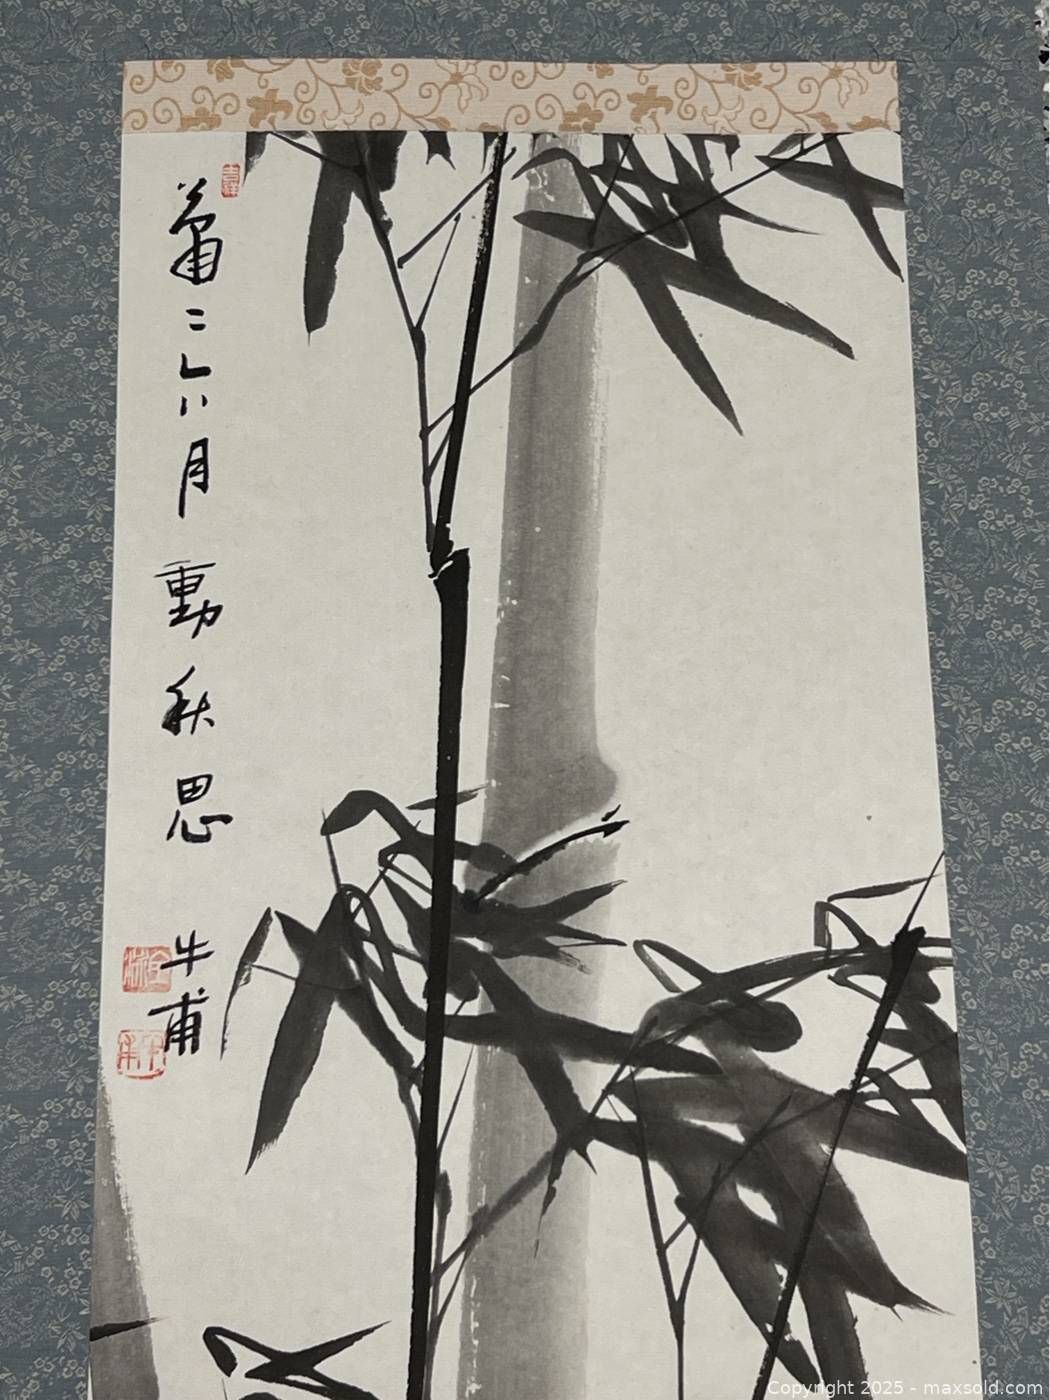 蕭々六月動秋思
牛甫
Copyright 2025 - maxsold.com